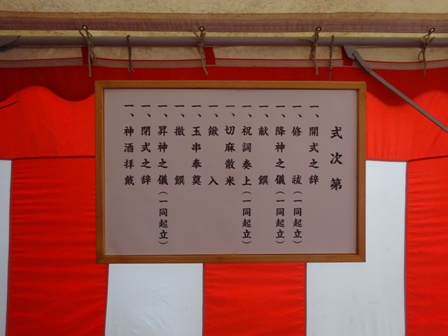 式次第
一、開式之辞
一、修祓(一同起立)
一、降神之儀(一同起立)
一、献饌
一、祝詞奏上(一同起立)
一、切麻散米
一、鍬入
一、玉串奉奠
一、撤饌
一、昇神之儀(一同起立)
一、閉式之辞
一、神酒拝戴